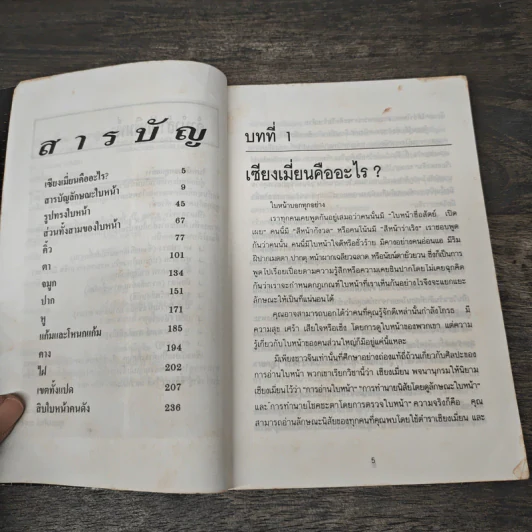 สารบัญ
เซียงเมี่ยนคืออะไร? 5
สารบัญลักษณะใบหน้า 9
รูปทรงใบหน้า 45
ส่วนทั้งสามของใบหน้า 67
คิ้ว 77
ตา 101
จมูก 134
ปาก 151
หู 171
แก้มและโหนกแก้ม 185
คาง 194
ไฝ 202
เขตทั้งแปด 207
สิบใบหน้าคนดัง 236
บทที่ 1
เซียงเมี่ยนคืออะไร ?
ใบหน้าบอกทุกอย่าง
เราทุกคนเคยพูดกันอยู่เสมอว่าคนนั้นมี "ใบหน้าซื่อสัตย์ เปิด
เผย" คนนี้มี "สีหน้ากังวล" หรือคนโน้นมี "สีหน้าร่าเริง" เราชอบพูด
กันว่าคนนั้น คนนี้มีใบหน้าใจดีหรือชั่วร้าย มีคางอย่างคนอ่อนแอ มีริม
ฝีปากเมตตา ปากดุ หน้าผากเฉลียวฉลาด หรือนัยน์ตายั่วยวน ซึ่งก็เป็นการ
พูดไปเรื่อยเปื่อยตามความรู้สึกหรือความเคยชินปากโดยไม่เคยฉุกคิด
กันว่าเราจะกำหนดกฎเกณฑ์ใบหน้าที่เราเห็นกันอย่างไรจึงจะแยกแยะ
ลักษณะให้เป็นที่แน่นอนได้
คุณอาจสามารถบอกได้ว่าคนที่คุณรู้จักดีเหล่านั้นกำลังโกรธ มี
ความสุข เศร้า เสียใจหรือเซ็ง โดยการดูใบหน้าของพวกเขา แต่ความ
รู้เกี่ยวกับใบหน้าของคนส่วนใหญ่ก็มีอยู่แค่นี้แหละ
มีเพียงชาวจีนเท่านั้นที่ศึกษาอย่างถ่องแท้ถี่ถ้วนเกี่ยวกับศิลปะของ
การอ่านใบหน้า พวกเขาเรียกวิชานี้ว่า เซียงเมี่ยน พจนานุกรมให้นิยาม
เซียงเมี่ยนไว้ว่า "การอ่านใบหน้า" "การทำนายนิสัยโดยดูลักษณะใบหน้า"
และ "การทำนายโชคชะตาโดยการตรวจใบหน้า" ความจริงก็คือ คุณ
สามารถอ่านลักษณะนิสัยของทุกคนที่คุณพบโดยใช้ตำราเซียงเมี่ยน และ
5